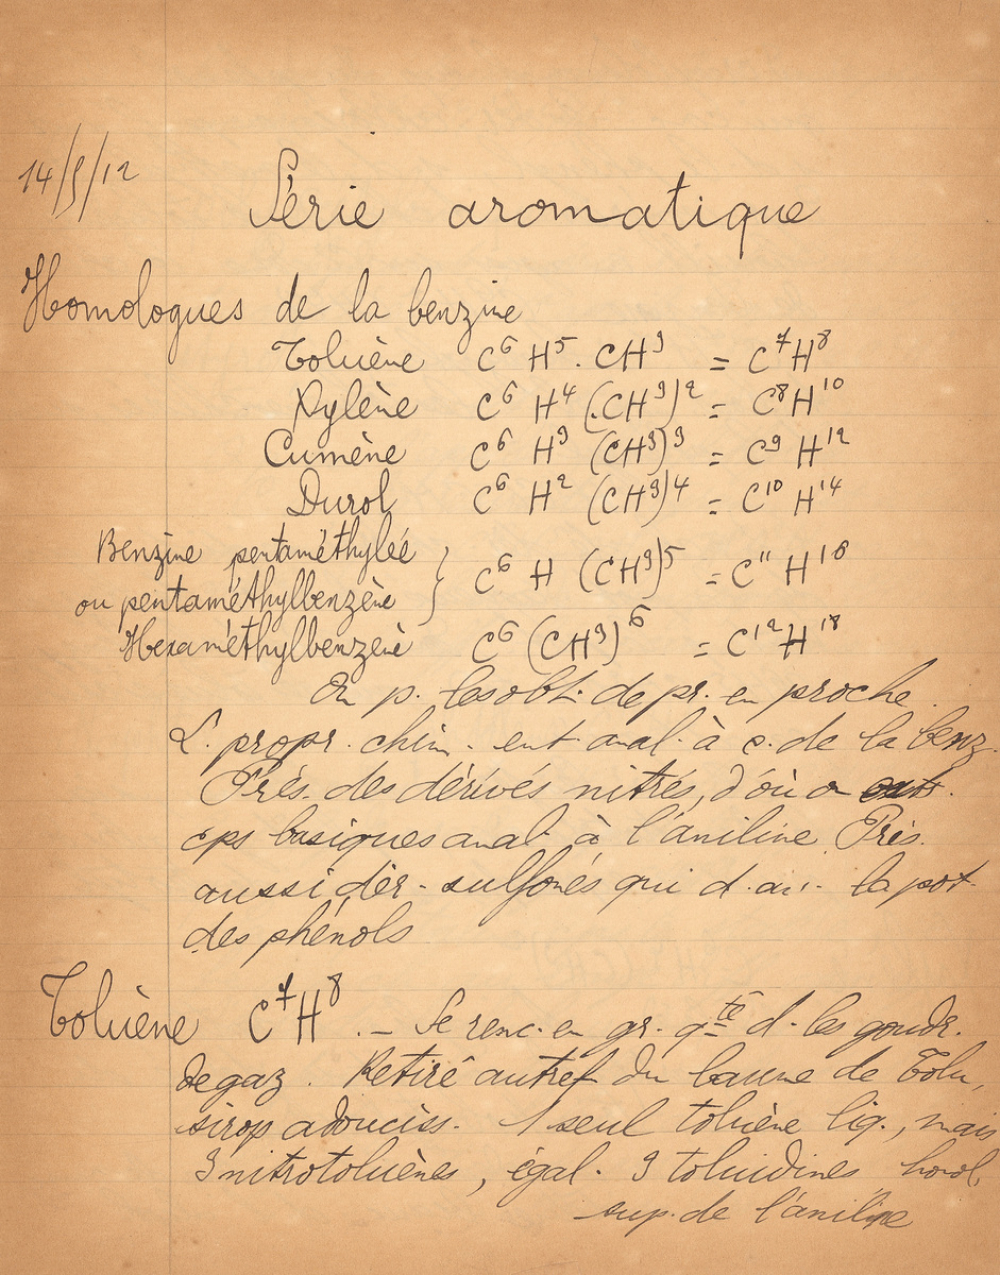 14/5/12
Série aromatique
Homologues de la benzine
Toluène C⁶ H⁵. CH³ = C⁷H⁸
Xylène C⁶ H⁴ (CH³)² = C⁸H¹⁰
Cumène C⁶ H³ (CH³)³ = C⁹ H¹²
Durol C⁶ H² (CH³)⁴ = C¹⁰ H¹⁴
Benzine pentaméthylée
ou pentaméthylbenzène } C⁶ H (CH³)⁵ = C¹¹ H¹⁶
Hexaméthylbenzène C⁶ (CH³)⁶ = C¹²H¹⁸
On p. les obt. de pr. en proche.
L. propr. chim. ent anal. à c. de la benz.
Très. des dérivés nitrés, d'où on
cps basiques anal. à l'aniline Très.
aussi dér. sulfonés qui d. av. la pot.
des phénols
Toluène C⁷H⁸. - Se renc. en gr. qté d. les goudr.
de gaz. Retiré autref du baume de Tolu,
sirop adouciss. 1 seul toluène liq., mais
3 nitrotoluènes, égal. 3 toluidines homol.
sup. de l'aniline